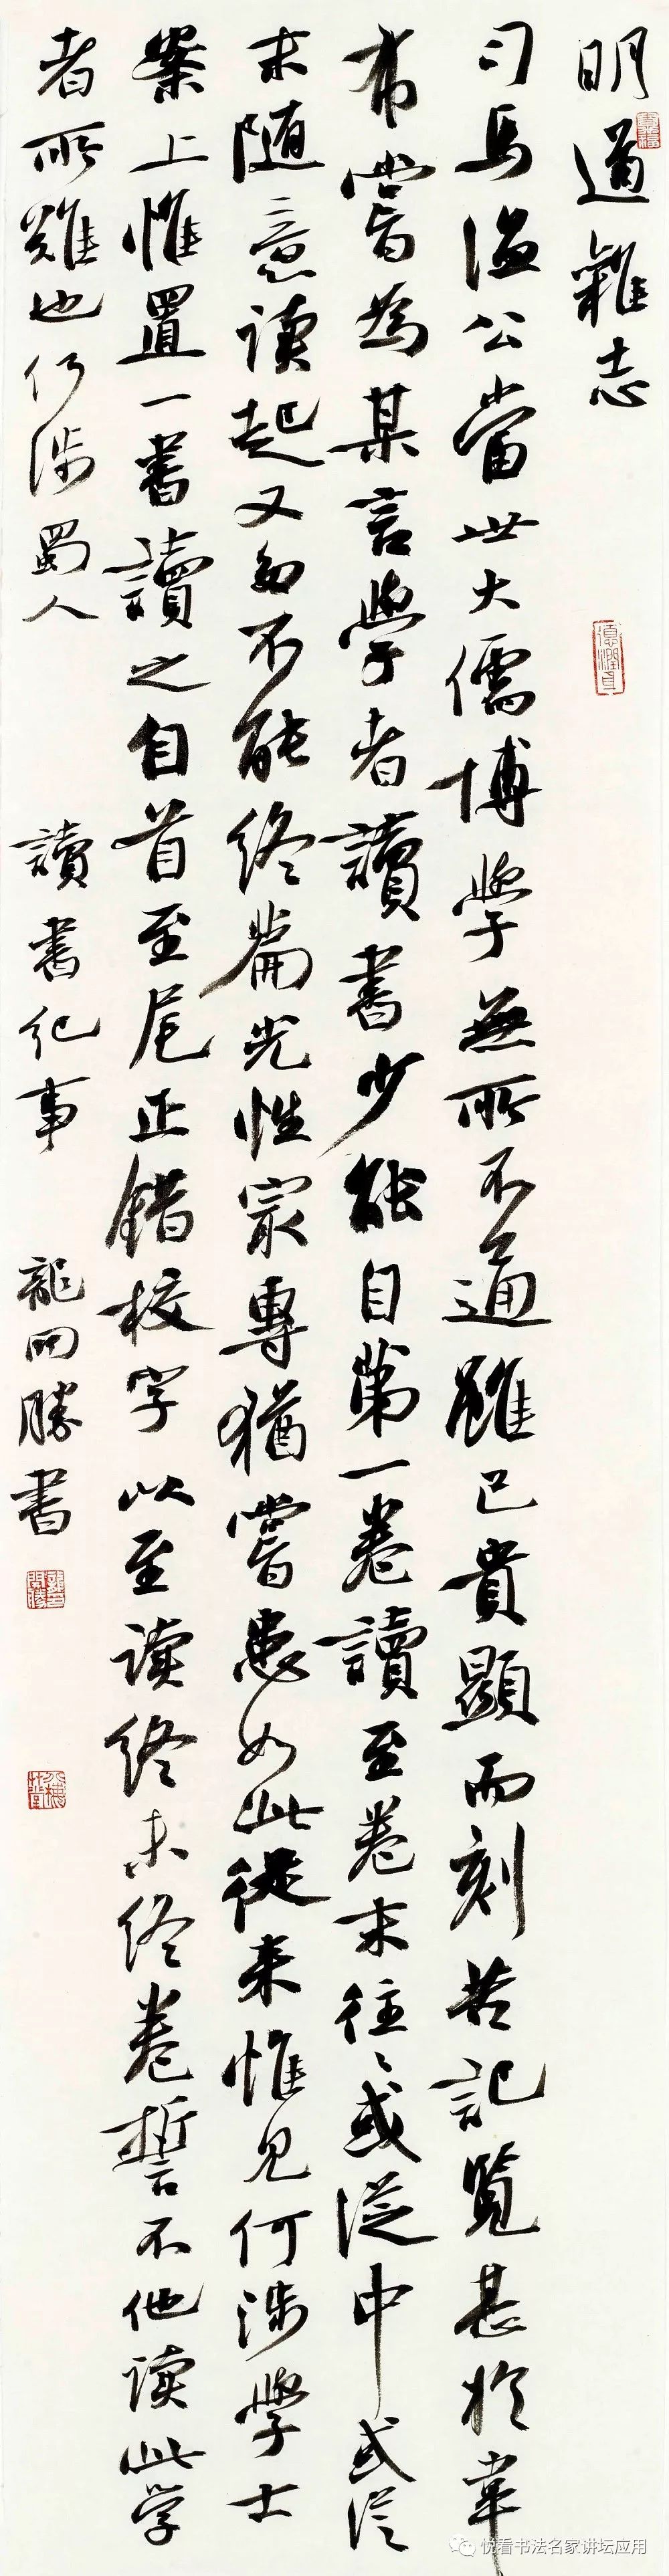 明道雜志
司馬温公當世大儒博學無所不通雖已貴顯而刻苦記覽甚於韋
布嘗為某言學者讀書少能自第一卷讀至卷末往々或從中或從
末随意读起又多不能終篇光性最專猶嘗患如此從来惟見何涉學士
案上惟置一書讀之自首至尾正錯校字以至读終未終卷誓不他读此学
者所難也何涉蜀人
讀書纪事
龍開勝書
悦看书法名家讲坛应用